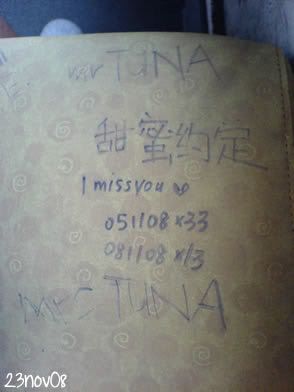 mr TUNA
甜蜜约定
I miss you
051108 x33
081108 x13
mrs TUNA
23nov08